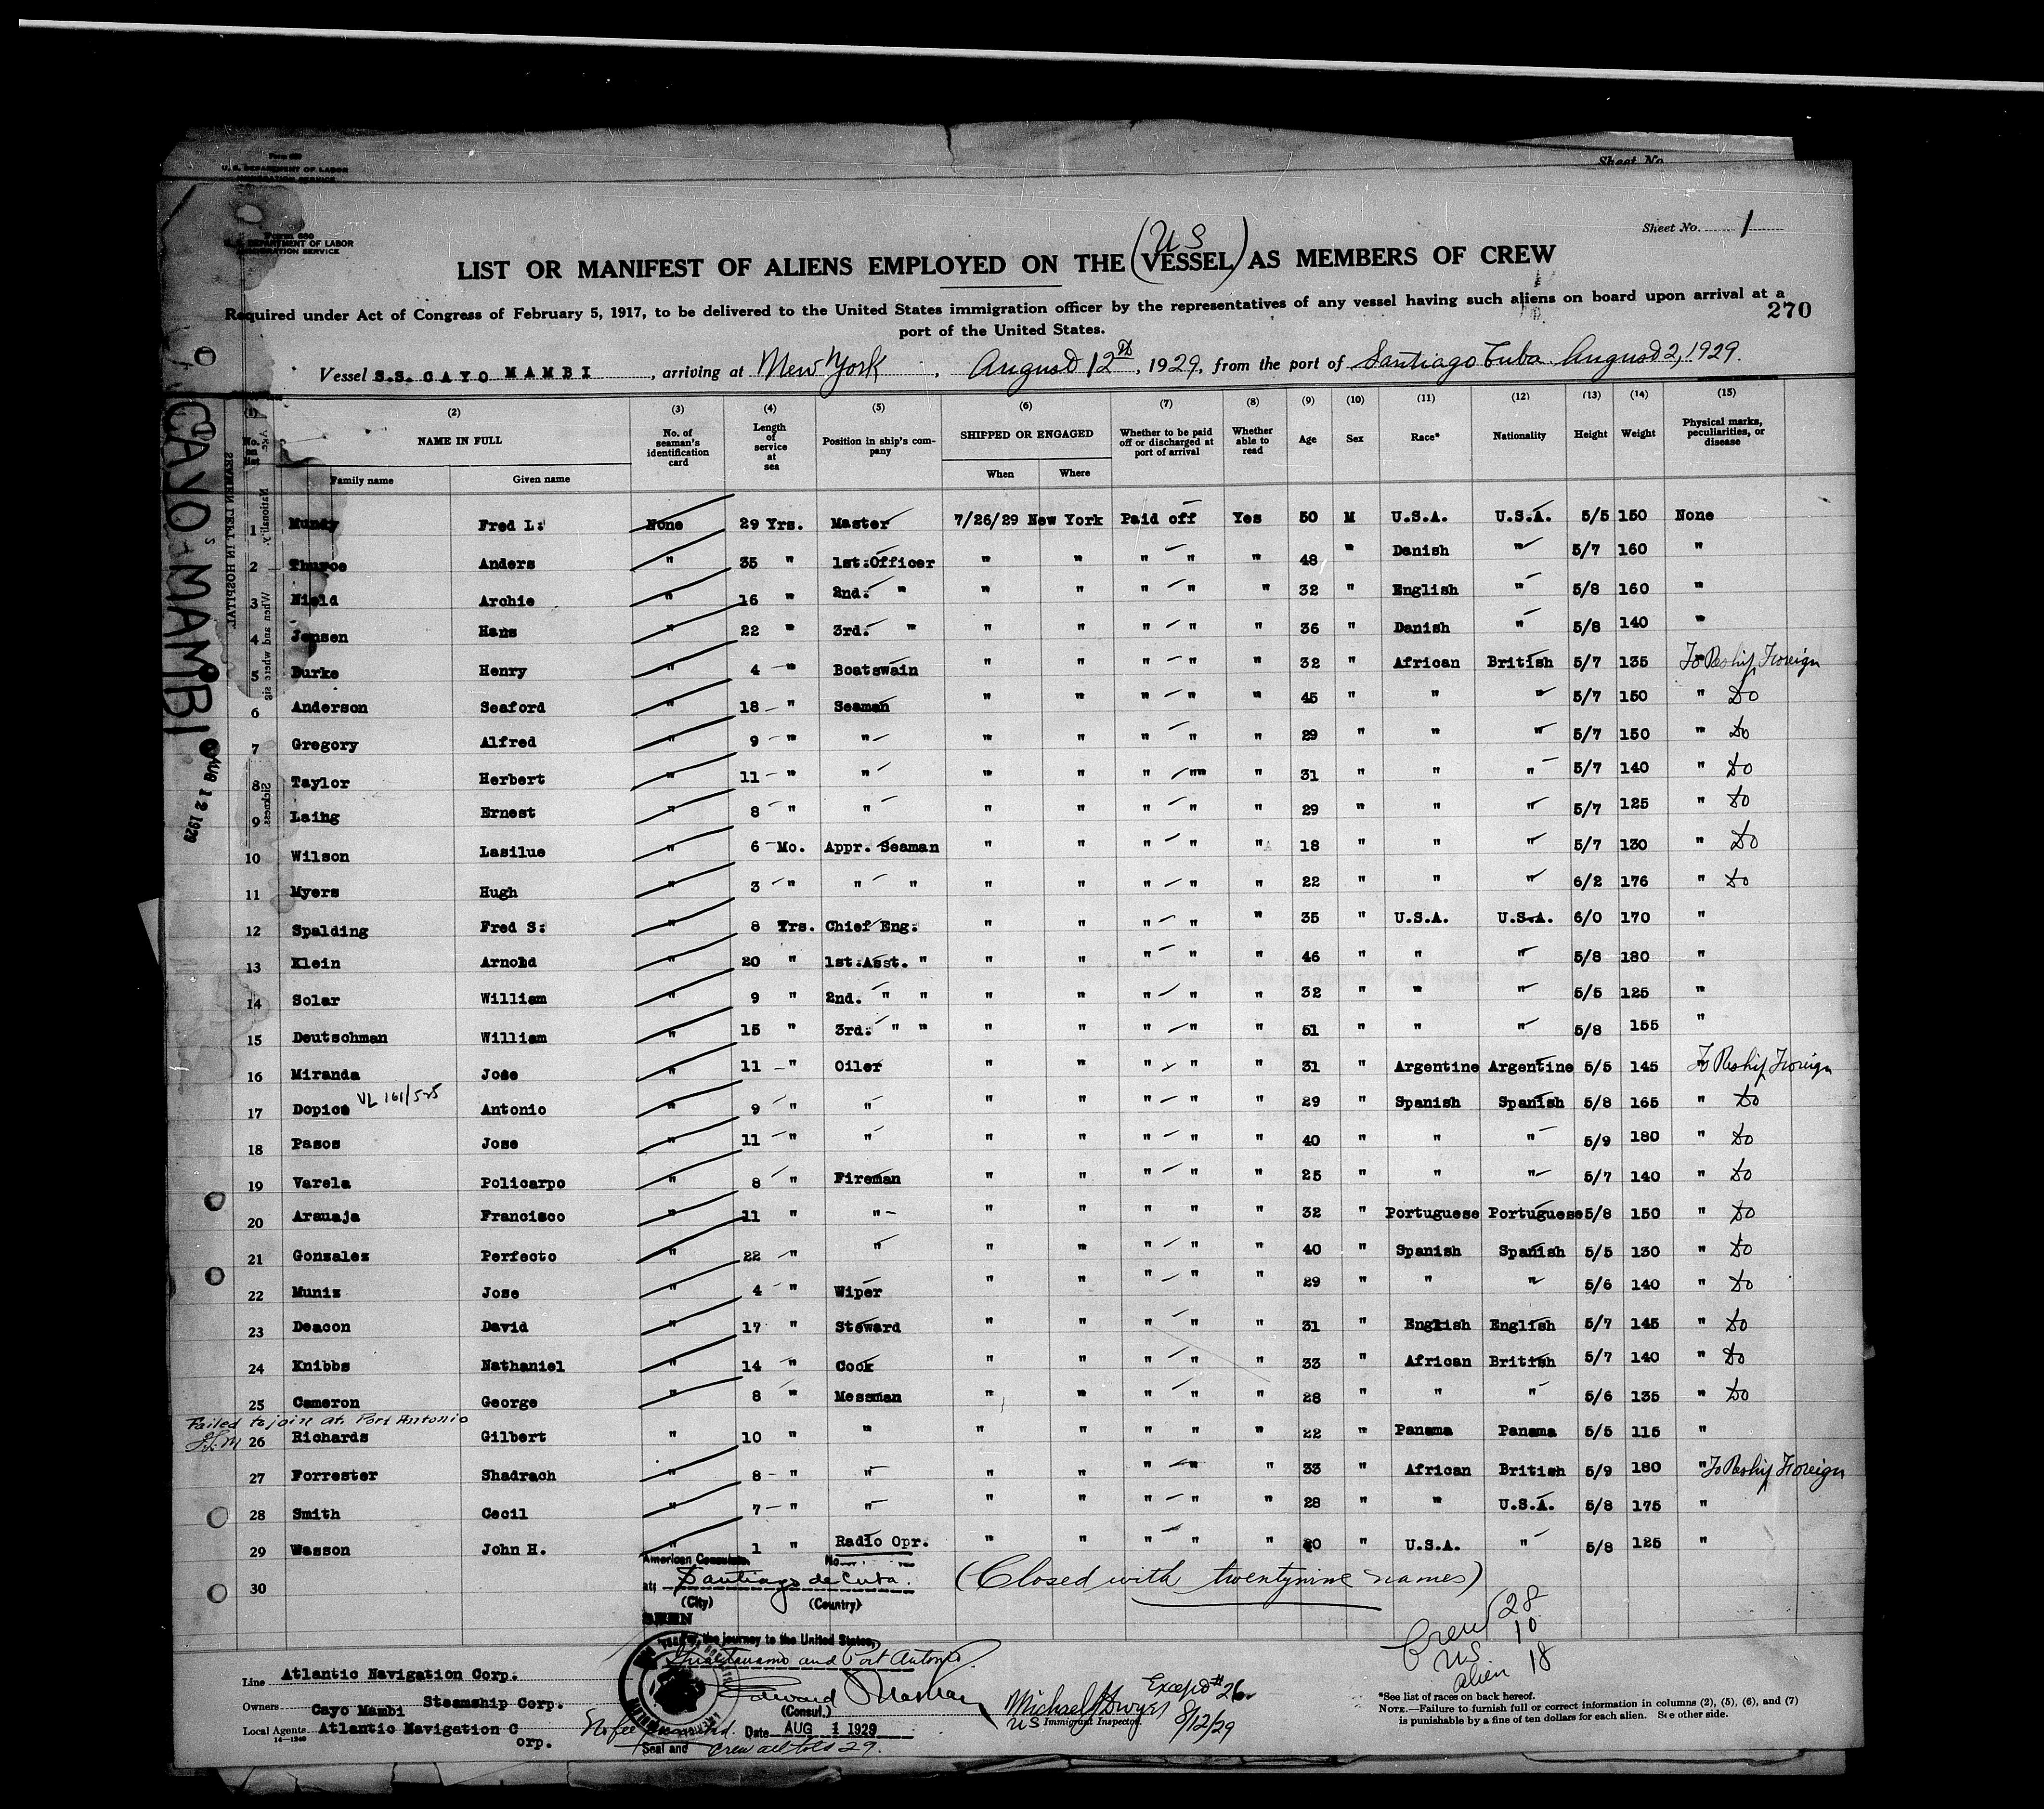 Form 680
U. S. DEPARTMENT OF LABOR
IMMIGRATION SERVICE
Sheet No.
Form 680
U. S. DEPARTMENT OF LABOR
IMMIGRATION SERVICE
Sheet No. 1
(US)
LIST OR MANIFEST OF ALIENS EMPLOYED ON THE VESSEL AS MEMBERS OF CREW
Required under Act of Congress of February 5, 1917, to be delivered to the United States immigration officer by the representatives of any vessel having such aliens on board upon arrival at a
port of the United States.
270
Vessel S.S. CAYO MAMBI, arriving at New York, August 12th, 1929, from the port of Santiago Cuba August 2, 1929.
CAYO-MAMBI
AUG 12 1929
SEAMEN LEFT IN HOSPITAL
Nationality.
When and where
Sickness.
(1) (2) (3) (4) (5) (6) (7) (8) (9) (10) (11) (12) (13) (14) (15)
No. on list | NAME IN FULL | No. of seaman's identification card | Length of service at sea | Position in ship's company | SHIPPED OR ENGAGED | Whether to be paid off or discharged at port of arrival | Whether able to read | Age | Sex | Race* | Nationality | Height | Weight | Physical marks, peculiarities, or disease
Family name | Given name | When | Where
1 Mundy Fred L. None 29 Yrs. Master 7/26/29 New York Paid off Yes 50 M U.S.A. U.S.A. 5/5 150 None
2 Thuroe Anders " 35 " 1st.Officer " " " " " 48 " Danish " 5/7 160 "
3 Nield Archie " 16 " 2nd. " " " " " " 32 " English " 5/8 160 "
4 Jensen Hans " 22 " 3rd. " " " " " " 36 " Danish " 5/8 140 "
5 Burke Henry " 4 " Boatswain " " " " " 32 " African British 5/7 135 " To Reship Foreign
6 Anderson Seaford " 18 " Seaman " " " " " 45 " " " 5/7 150 " Do
7 Gregory Alfred " 9 " " " " " " " 29 " " " 5/7 150 " Do
8 Taylor Herbert " 11 " " " " " "" " 31 " " " 5/7 140 " Do
9 Laing Ernest " 8 " " " " " " " 29 " " " 5/7 125 " Do
10 Wilson Lasilue " 6 Mo. Appr. Seaman " " " " " 18 " " " 5/7 130 " Do
11 Myers Hugh " 3 " " " " " " " " 22 " " " 6/2 176 " Do
12 Spalding Fred S. " 8 Yrs. Chief Eng. " " " " " 35 " U.S.A. U.S.A. 6/0 170 "
13 Klein Arnold " 20 " 1st.Asst. " " " " " " 46 " " " 5/8 180 "
14 Solar William " 9 " 2nd. " " " " " " " 32 " " " 5/5 125 "
15 Deutschman William " 15 " 3rd. " " " " " " " 51 " " " 5/8 155 "
16 Miranda Jose " 11 " Oiler " " " " " 31 " Argentine Argentine 5/5 145 " To Reship Foreign
VL 161/525
17 Dopico Antonio " 9 " " " " " " " 29 " Spanish Spanish 5/8 165 " Do
18 Pasos Jose " 11 " " " " " " " 40 " " " 5/9 180 " Do
19 Varela Policarpo " 8 " Fireman " " " " " 25 " " " 5/7 140 " Do
20 Arauaja Francisco " 11 " " " " " " " 32 " Portuguese Portuguese 5/8 150 " Do
21 Gonzalez Perfecto " 22 " " " " " " " 40 " Spanish Spanish 5/5 130 " Do
22 Muniz Jose " 4 " Wiper " " " " " 29 " " " 5/6 140 " Do
23 Deacon David " 17 " Steward " " " " " 31 " English English 5/7 145 " Do
24 Knibbs Nathaniel " 14 " Cook " " " " " 33 " African British 5/7 140 " Do
25 Cameron George " 8 " Messman " " " " " 28 " " " 5/6 135 " Do
Failed to join at Port Antonio
26 Richards Gilbert " 10 " " " " " " " 22 " Panama Panama 5/5 115 "
27 Forrester Shadrach " 8 " " " " " " " 33 " African British 5/9 180 " To Reship Foreign
28 Smith Cecil " 7 " " " " " " " 28 " " U.S.A. 5/8 175 "
29 Wasson John H. " 1 " Radio Opr. " " " " " 20 " U.S.A. " 5/8 125 "
30
American Consulate. No
at; Santiago de Cuba.
(City) (Country)
(Closed with twentynine names)
SEEN
the journey to the United States,
Guantanamo and Port Antonio.
Crew 28
US 10
alien 18
Line Atlantic Navigation Corp.
Owners Cayo Mambi Steamship Corp.
Local Agents Atlantic Navigation Corp.
14—1240
Edward
(Consul.)
No fee
Date AUG 1 1929
Seal and
Crew all told 29.
Except # 26
Michael J Dwyer 8/12/29
US Immigrant Inspector.
*See list of races on back hereof.
NOTE.—Failure to furnish full or correct information in columns (2), (5), (6), and (7)
is punishable by a fine of ten dollars for each alien. See other side.